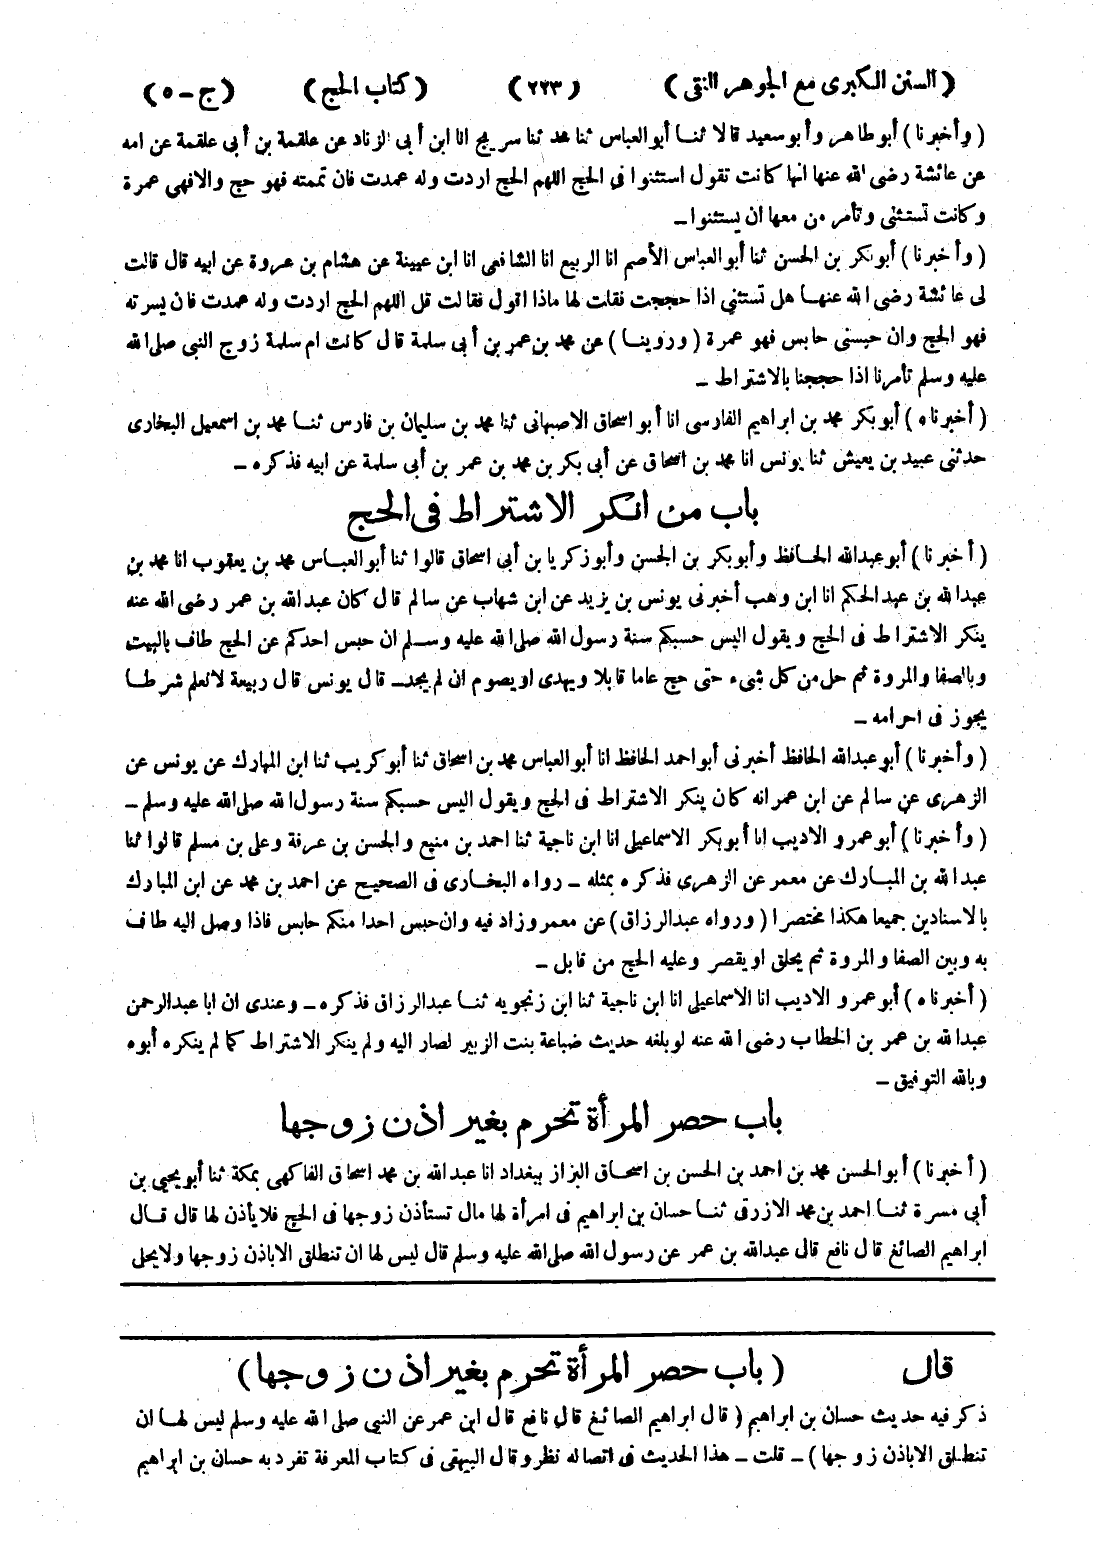 (السنن الكبرى مع الجوهر النقى) (٢٢٣) (كتاب الحج) (ج - ٥)
(وأخبرنا) أبو طاهر وأبو سعيد قالا ثنا أبو العباس ثنا محمد ثنا سريج انا ابن أبى الزناد عن علقمة بن أبى علقمة عن امه
عن عائشة رضى الله عنها انها كانت تقول استثنوا فى الحج اللهم الحج اردت وله عمدت فان تممته فهو حج والا فهى عمرة
وكانت تستثنى وتأمر من معها ان يستثنوا -
(وأخبرنا) أبو بكر بن الحسن ثنا أبو العباس الأصم انا الربيع انا الشافعى انا ابن عيينة عن هشام بن عروة عن ابيه قال قالت
لى عائشة رضى الله عنها هل تستثنى اذا حججت فقلت لها ماذا اقول فقالت قل اللهم الحج اردت وله عمدت فان يسرته
فهو الحج وان حبسنى حابس فهو عمرة (وروينا) عن محمد بن عمر بن أبى سلمة قال كانت ام سلمة زوج النبى صلى الله
عليه وسلم تأمرنا اذا حججنا بالاشتراط -
(أخبرناه) أبو بكر محمد بن ابراهيم الفارسى انا أبو اسحاق الاصبهانى ثنا محمد بن سليمان بن فارس ثنا محمد بن اسمعيل البخارى
حدثنى عبيد بن يعيش ثنا يونس انا محمد بن اسحاق عن أبى بكر بن محمد بن عمر بن أبى سلمة عن ابيه فذكره -
باب من انكر الاشتراط فى الحج
(أخبرنا) أبو عبدالله الحافظ وأبو بكر بن الحسن وأبو زكريا بن أبى اسحاق قالوا ثنا أبو العباس محمد بن يعقوب انا محمد بن
عبدالله بن عبدالحكم انا ابن وهب أخبرنى يونس بن يزيد عن ابن شهاب عن سالم قال كان عبدالله بن عمر رضى الله عنه
ينكر الاشتراط فى الحج ويقول اليس حسبكم سنة رسول الله صلى الله عليه وسلم ان حبس احدكم عن الحج طاف بالبيت
وبالصفا والمروة ثم حل من كل شىء حتى حج عاما قابلا ويهدى او يصوم ان لم يجد - قال يونس قال ربيعة لا نعلم شرطا
يجوز فى احرامه -
(وأخبرنا) أبو عبدالله الحافظ أخبرنى أبو احمد الحافظ انا أبو العباس محمد بن اسحاق ثنا أبو كريب ثنا ابن المبارك عن يونس عن
الزهرى عن سالم عن ابن عمر انه كان ينكر الاشتراط فى الحج ويقول اليس حسبكم سنة رسول الله صلى الله عليه وسلم -
(وأخبرنا) أبو عمرو الاديب انا أبو بكر الاسماعيلى انا ابن ناجية ثنا احمد بن منيع والحسن بن عرفة وعلى بن مسلم قالوا ثنا
عبدالله بن المبارك عن معمر عن الزهرى فذكره بمثله - رواه البخارى فى الصحيح عن احمد بن محمد عن ابن المبارك
بالاسنادين جميعا هكذا مختصرا (ورواه عبدالرزاق) عن معمر وزاد فيه وان حبس احدا منكم حابس فاذا وصل اليه طاف
به وبين الصفا والمروة ثم يحلق او يقصر وعليه الحج من قابل -
(أخبرناه) أبو عمرو الاديب انا الاسماعيلى انا ابن ناجية ثنا ابن زنجويه ثنا عبدالرزاق فذكره - وعندى ان ابا عبدالرحمن
عبدالله بن عمر بن الخطاب رضى الله عنه لو بلغه حديث ضباعة بنت الزبير لصار اليه ولم ينكر الاشتراط كما لم ينكره أبوه
وبالله التوفيق -
باب حصر المرأة تحرم بغير اذن زوجها
(أخبرنا) أبو الحسن محمد بن احمد بن الحسن بن اسحاق البزاز ببغداد انا عبدالله بن محمد اسحاق الفاكهى بمكة ثنا أبو يحيى بن
أبى مسرة ثنا احمد بن محمد الازرقى ثنا حسان بن ابراهيم فى امرأة لها مال تستأذن زوجها فى الحج فلا يأذن لها قال قال
ابراهيم الصائغ قال نافع قال عبدالله بن عمر عن رسول الله صلى الله عليه وسلم قال ليس لها ان تنطلق الا باذن زوجها ولا يحلى
قال (باب حصر المرأة تحرم بغير اذن زوجها)
ذكر فيه حديث حسان بن ابراهيم (قال ابراهيم الصائغ قال نافع قال ابن عمر عن النبى صلى الله عليه وسلم ليس لها ان
تنطلق الا باذن زوجها) - قلت - هذا الحديث فى اتصاله نظر وقال البيهقى فى كتاب المعرفة تفرد به حسان بن ابراهيم